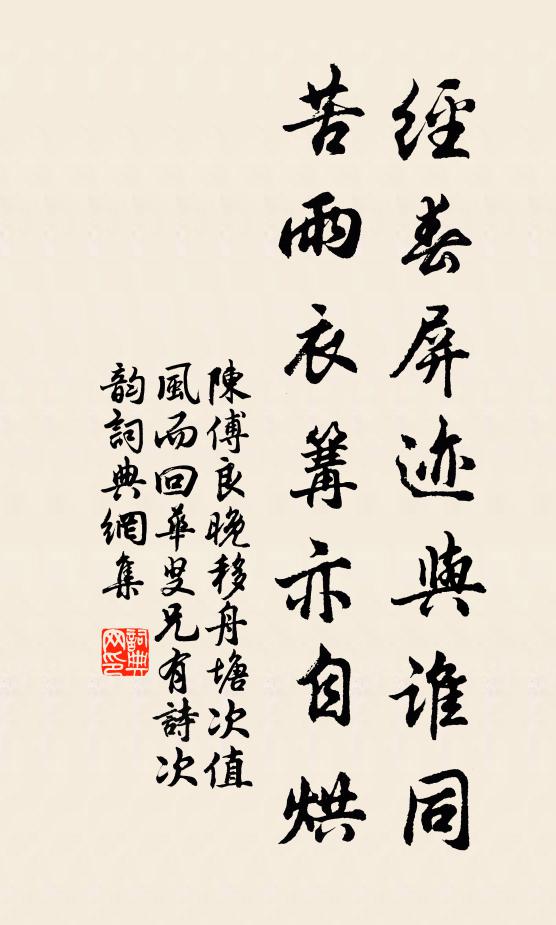 經春屏迹與誰同
苦雨衣篝亦自烘
陳傅良晚移舟塘次值
風而回華叟兄有詩次
韵詞典網集
詞典网印